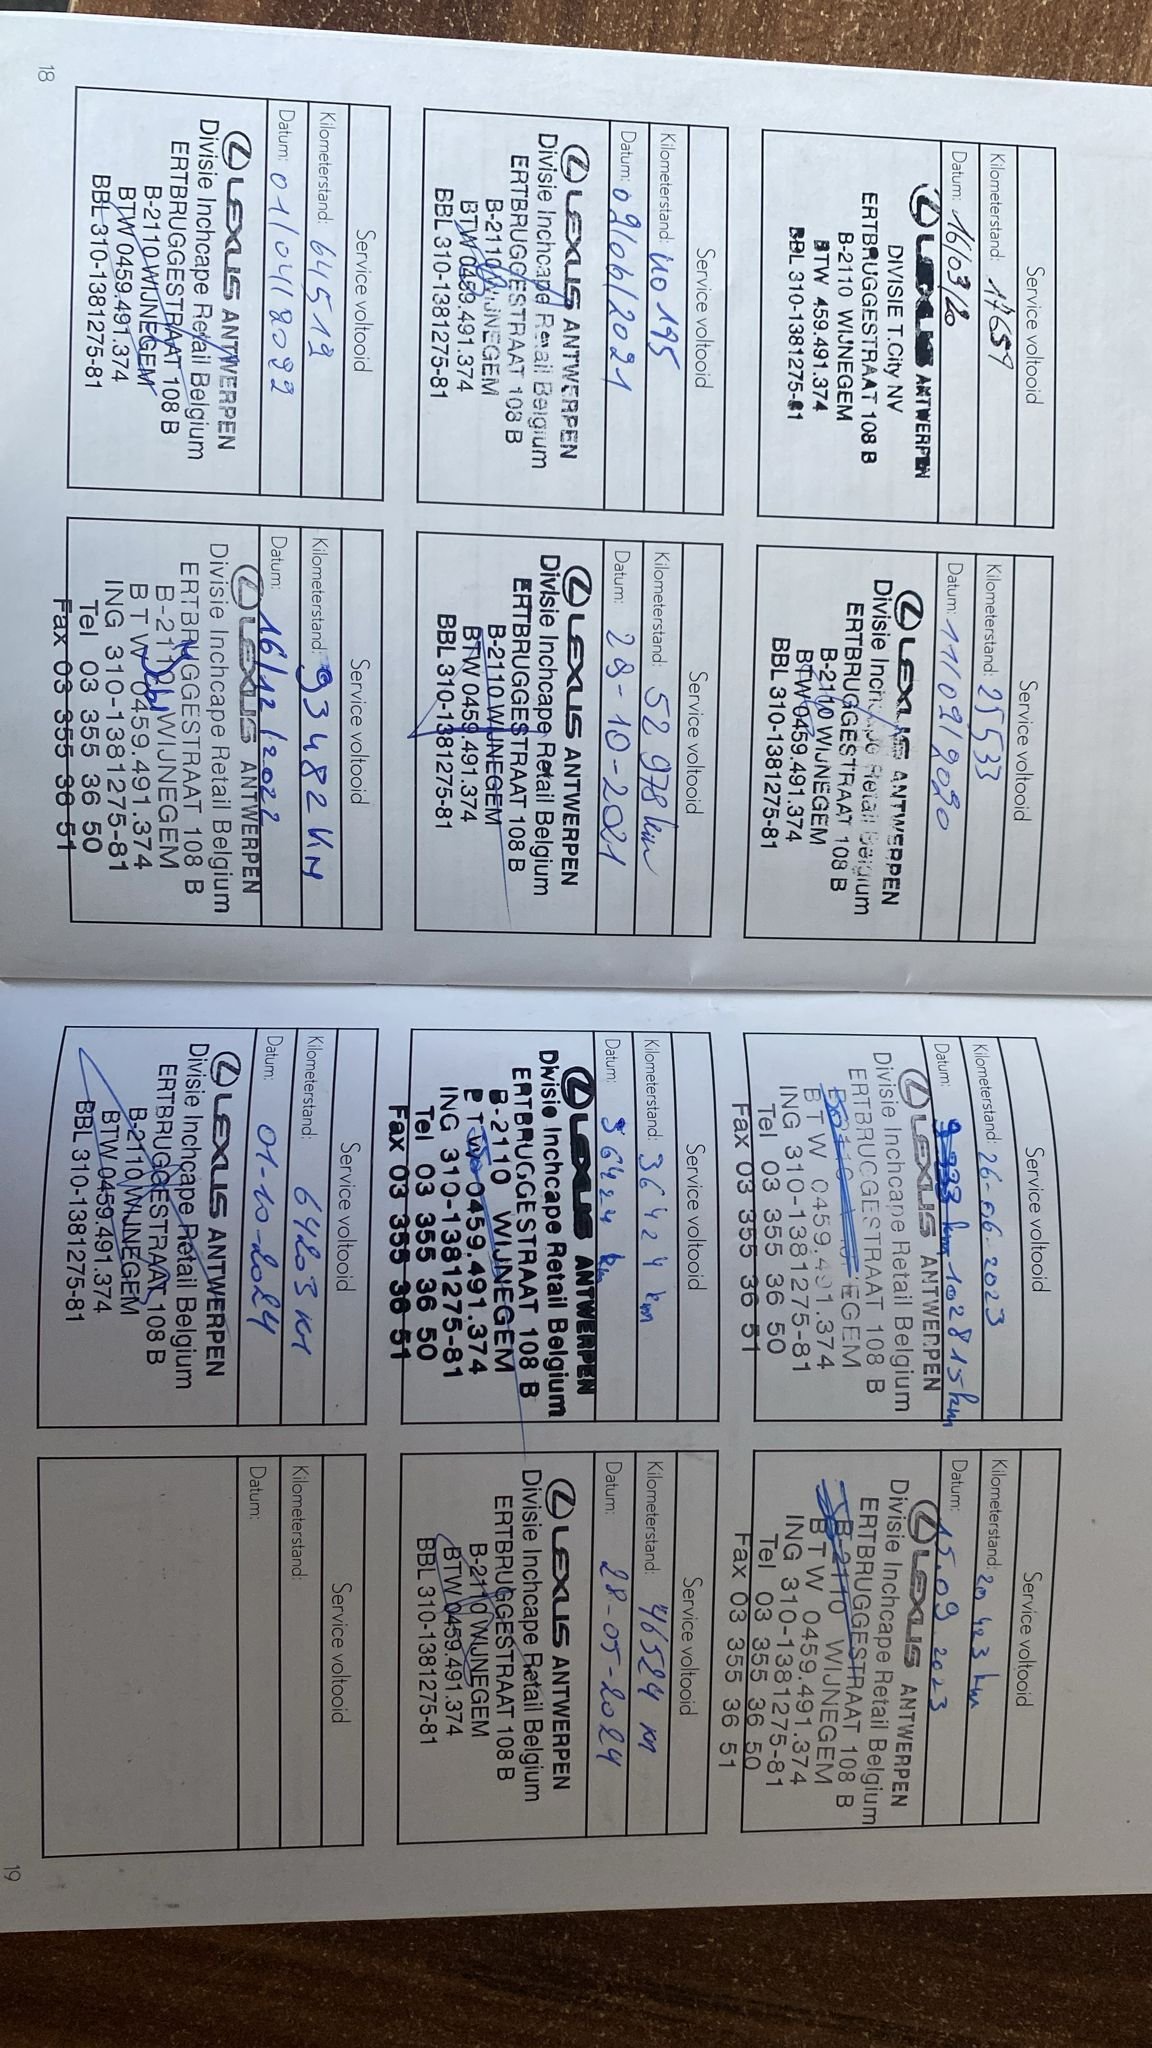 18
Service voltooid
Kilometerstand: 17659
Datum: 16/03/20
LEXUS ANTWERPEN
DIVISIE T.City NV
ERTBRUGGESTRAAT 108 B
B-2110 WIJNEGEM
BTW 459.491.374
BBL 310-1381275-81
Service voltooid
Kilometerstand: 25533
Datum: 11/09/2020
LEXUS ANTWERPEN
Divisie Inchcape Retail Belgium
ERTBRUGGESTRAAT 108 B
B-2110 WIJNEGEM
BTW 0459.491.374
BBL 310-1381275-81
Service voltooid
Kilometerstand: 40195
Datum: 09/06/2021
LEXUS ANTWERPEN
Divisie Inchcape Retail Belgium
ERTBRUGGESTRAAT 108 B
B-2110 WIJNEGEM
BTW 0459.491.374
BBL 310-1381275-81
Service voltooid
Kilometerstand: 52978 km
Datum: 29-10-2021
LEXUS ANTWERPEN
Divisie Inchcape Retail Belgium
ERTBRUGGESTRAAT 108 B
B-2110 WIJNEGEM
BTW 0459.491.374
BBL 310-1381275-81
Service voltooid
Kilometerstand: 64519
Datum: 01/04/2022
LEXUS ANTWERPEN
Divisie Inchcape Retail Belgium
ERTBRUGGESTRAAT 108 B
B-2110 WIJNEGEM
BTW 0459.491.374
BBL 310-1381275-81
Service voltooid
Kilometerstand: 93482 KM
Datum: 16/12/2022
LEXUS ANTWERPEN
Divisie Inchcape Retail Belgium
ERTBRUGGESTRAAT 108 B
B-2110 WIJNEGEM
BTW 0459.491.374
ING 310-1381275-81
Tel 03 355 36 50
Fax 03 355 36 51
Service voltooid
Kilometerstand: 26-06-2023
Datum: 102815 km
LEXUS ANTWERPEN
Divisie Inchcape Retail Belgium
ERTBRUGGESTRAAT 108 B
B-2110 WIJNEGEM
BTW 0459.491.374
ING 310-1381275-81
Tel 03 355 36 50
Fax 03 355 36 51
Service voltooid
Kilometerstand: 20423 km
Datum: 15.09.2023
LEXUS ANTWERPEN
Divisie Inchcape Retail Belgium
ERTBRUGGESTRAAT 108 B
B-2110 WIJNEGEM
BTW 0459.491.374
ING 310-1381275-81
Tel 03 355 36 50
Fax 03 355 36 51
Service voltooid
Kilometerstand: 36424 km
Datum: 36424 km
LEXUS ANTWERPEN
Divisie Inchcape Retail Belgium
ERTBRUGGESTRAAT 108 B
B-2110 WIJNEGEM
BTW 0459.491.374
ING 310-1381275-81
Tel 03 355 36 50
Fax 03 355 36 51
Service voltooid
Kilometerstand: 46524 KM
Datum: 28-05-2024
LEXUS ANTWERPEN
Divisie Inchcape Retail Belgium
ERTBRUGGESTRAAT 108 B
B-2110 WIJNEGEM
BTW 0459.491.374
BBL 310-1381275-81
Service voltooid
Kilometerstand: 64203 KM
Datum: 01-10-2024
LEXUS ANTWERPEN
Divisie Inchcape Retail Belgium
ERTBRUGGESTRAAT 108 B
B-2110 WIJNEGEM
BTW 0459.491.374
BBL 310-1381275-81
Service voltooid
Kilometerstand:
Datum:
19